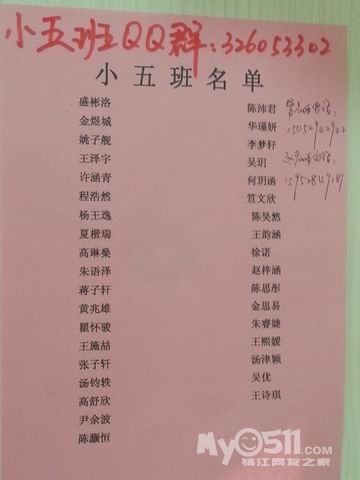 小五班QQ群:326053302
小五班名单
盛彬洛
金煜城
姚子舰
王泽宇
许涵青
程浩然
杨王逸
夏楷瑞
高琳燊
朱语泽
蒋子轩
黄兆雄
瞿怀骏
王施喆
张子轩
汤钧轶
高舒欣
尹余波
陈灏恒
陈沛君
华瑾妍
李梦轩
吴玥
何玥函
笪文欣
陈昊然
王韵涵
徐诺
赵梓涵
陈思彤
金思易
朱睿婕
王熙媛
汤津颖
吴优
王诗琪
15952849181
My0511.com
镇江网友之家